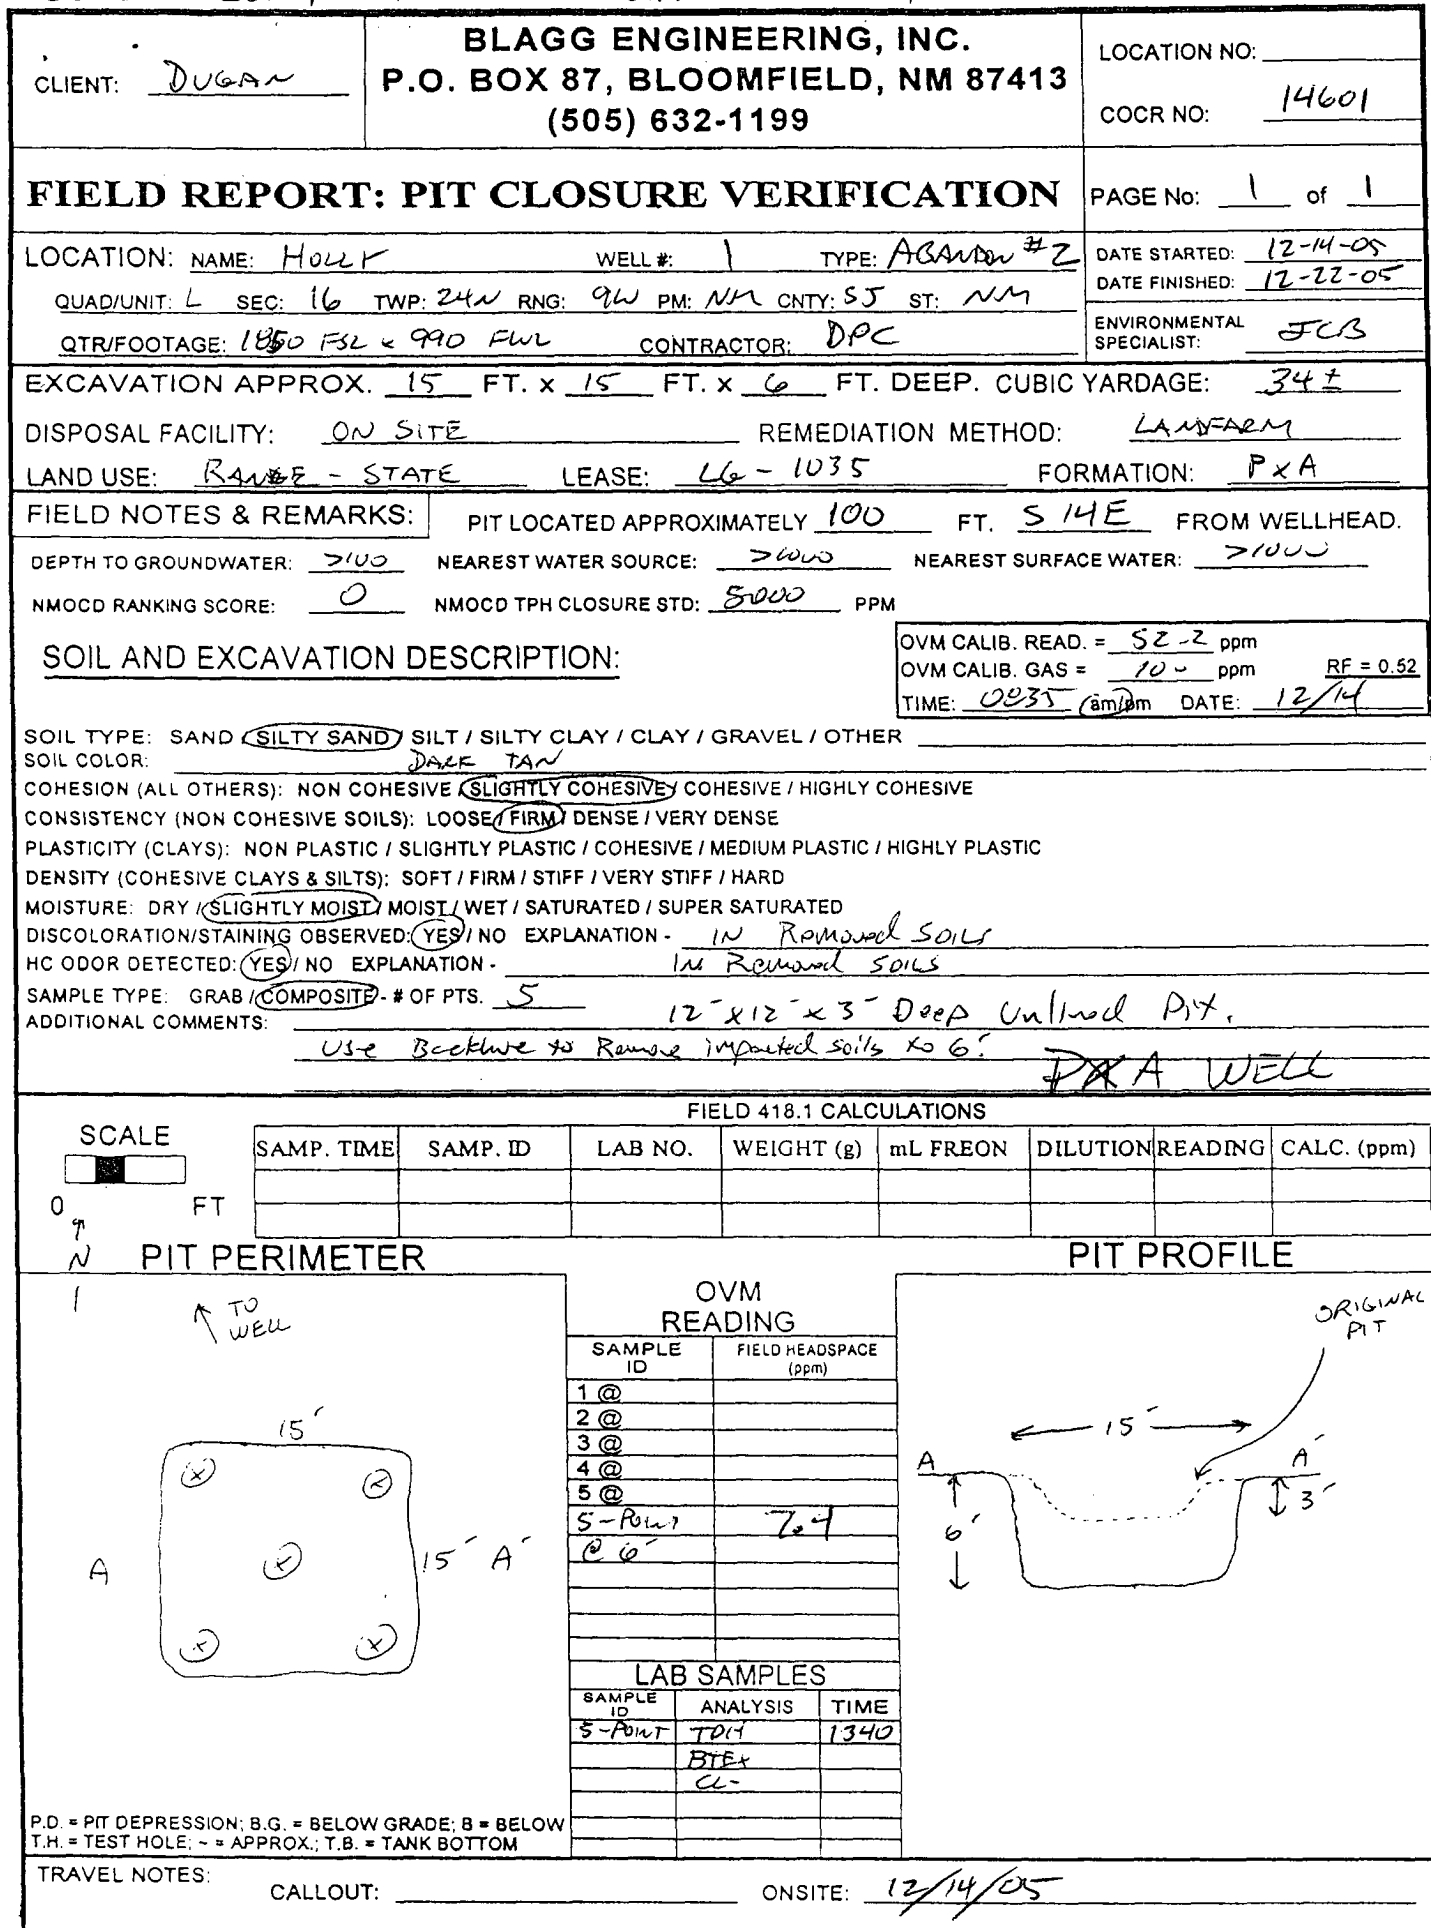 CLIENT: DUGAN
BLAGG ENGINEERING, INC.
P.O. BOX 87, BLOOMFIELD, NM 87413
(505) 632-1199
LOCATION NO:
COCR NO: 14601
FIELD REPORT: PIT CLOSURE VERIFICATION
PAGE No: 1 of 1
LOCATION: NAME: HOLLY WELL #: 1 TYPE: ABANDON #2
DATE STARTED: 12-14-05
DATE FINISHED: 12-22-05
QUAD/UNIT: L SEC: 16 TWP: 24N RNG: 9W PM: NM CNTY: SJ ST: NM
QTR/FOOTAGE: 1850 FSL x 990 FWL CONTRACTOR: DPC
ENVIRONMENTAL
SPECIALIST: JCB
EXCAVATION APPROX. 15 FT. x 15 FT. x 6 FT. DEEP. CUBIC YARDAGE: 34 ±
DISPOSAL FACILITY: ON SITE REMEDIATION METHOD: LANDFARM
LAND USE: RANGE - STATE LEASE: LG - 1035 FORMATION: P x A
FIELD NOTES & REMARKS: PIT LOCATED APPROXIMATELY 100 FT. S 14E FROM WELLHEAD.
DEPTH TO GROUNDWATER: >100 NEAREST WATER SOURCE: >1000 NEAREST SURFACE WATER: >1000
NMOCD RANKING SCORE: 0 NMOCD TPH CLOSURE STD: 5000 PPM
SOIL AND EXCAVATION DESCRIPTION:
OVM CALIB. READ. = 52.2 ppm
OVM CALIB. GAS = 100 ppm RF = 0.52
TIME: 0835 am/pm DATE: 12/14
SOIL TYPE: SAND / SILTY SAND / SILT / SILTY CLAY / CLAY / GRAVEL / OTHER
SOIL COLOR: DARK TAN
COHESION (ALL OTHERS): NON COHESIVE / SLIGHTLY COHESIVE / COHESIVE / HIGHLY COHESIVE
CONSISTENCY (NON COHESIVE SOILS): LOOSE / FIRM / DENSE / VERY DENSE
PLASTICITY (CLAYS): NON PLASTIC / SLIGHTLY PLASTIC / COHESIVE / MEDIUM PLASTIC / HIGHLY PLASTIC
DENSITY (COHESIVE CLAYS & SILTS): SOFT / FIRM / STIFF / VERY STIFF / HARD
MOISTURE: DRY / SLIGHTLY MOIST / MOIST / WET / SATURATED / SUPER SATURATED
DISCOLORATION/STAINING OBSERVED: YES / NO EXPLANATION - IN Removed SOILS
HC ODOR DETECTED: YES / NO EXPLANATION - IN Removed SOILS
SAMPLE TYPE: GRAB / COMPOSITE - # OF PTS. 5
ADDITIONAL COMMENTS: 12' x 12' x 3' Deep Unlined Pit.
Use Backhoe to Remove impacted soils to 6'.
P x A WELL
FIELD 418.1 CALCULATIONS
SCALE
0 FT
SAMP. TIME SAMP. ID LAB NO. WEIGHT (g) mL FREON DILUTION READING CALC. (ppm)
N
PIT PERIMETER
TO
WELL
15'
A 15' A'
OVM
READING
SAMPLE ID FIELD HEADSPACE (ppm)
1 @
2 @
3 @
4 @
5 @
5-Point 7.4
@ 6'
LAB SAMPLES
SAMPLE ID ANALYSIS TIME
5-POINT TPH 1340
BTEX
CL-
PIT PROFILE
ORIGINAL
PIT
15'
A A'
6' 3'
P.D. = PIT DEPRESSION; B.G. = BELOW GRADE; B = BELOW
T.H. = TEST HOLE; ~ = APPROX.; T.B. = TANK BOTTOM
TRAVEL NOTES:
CALLOUT: ONSITE: 12/14/05